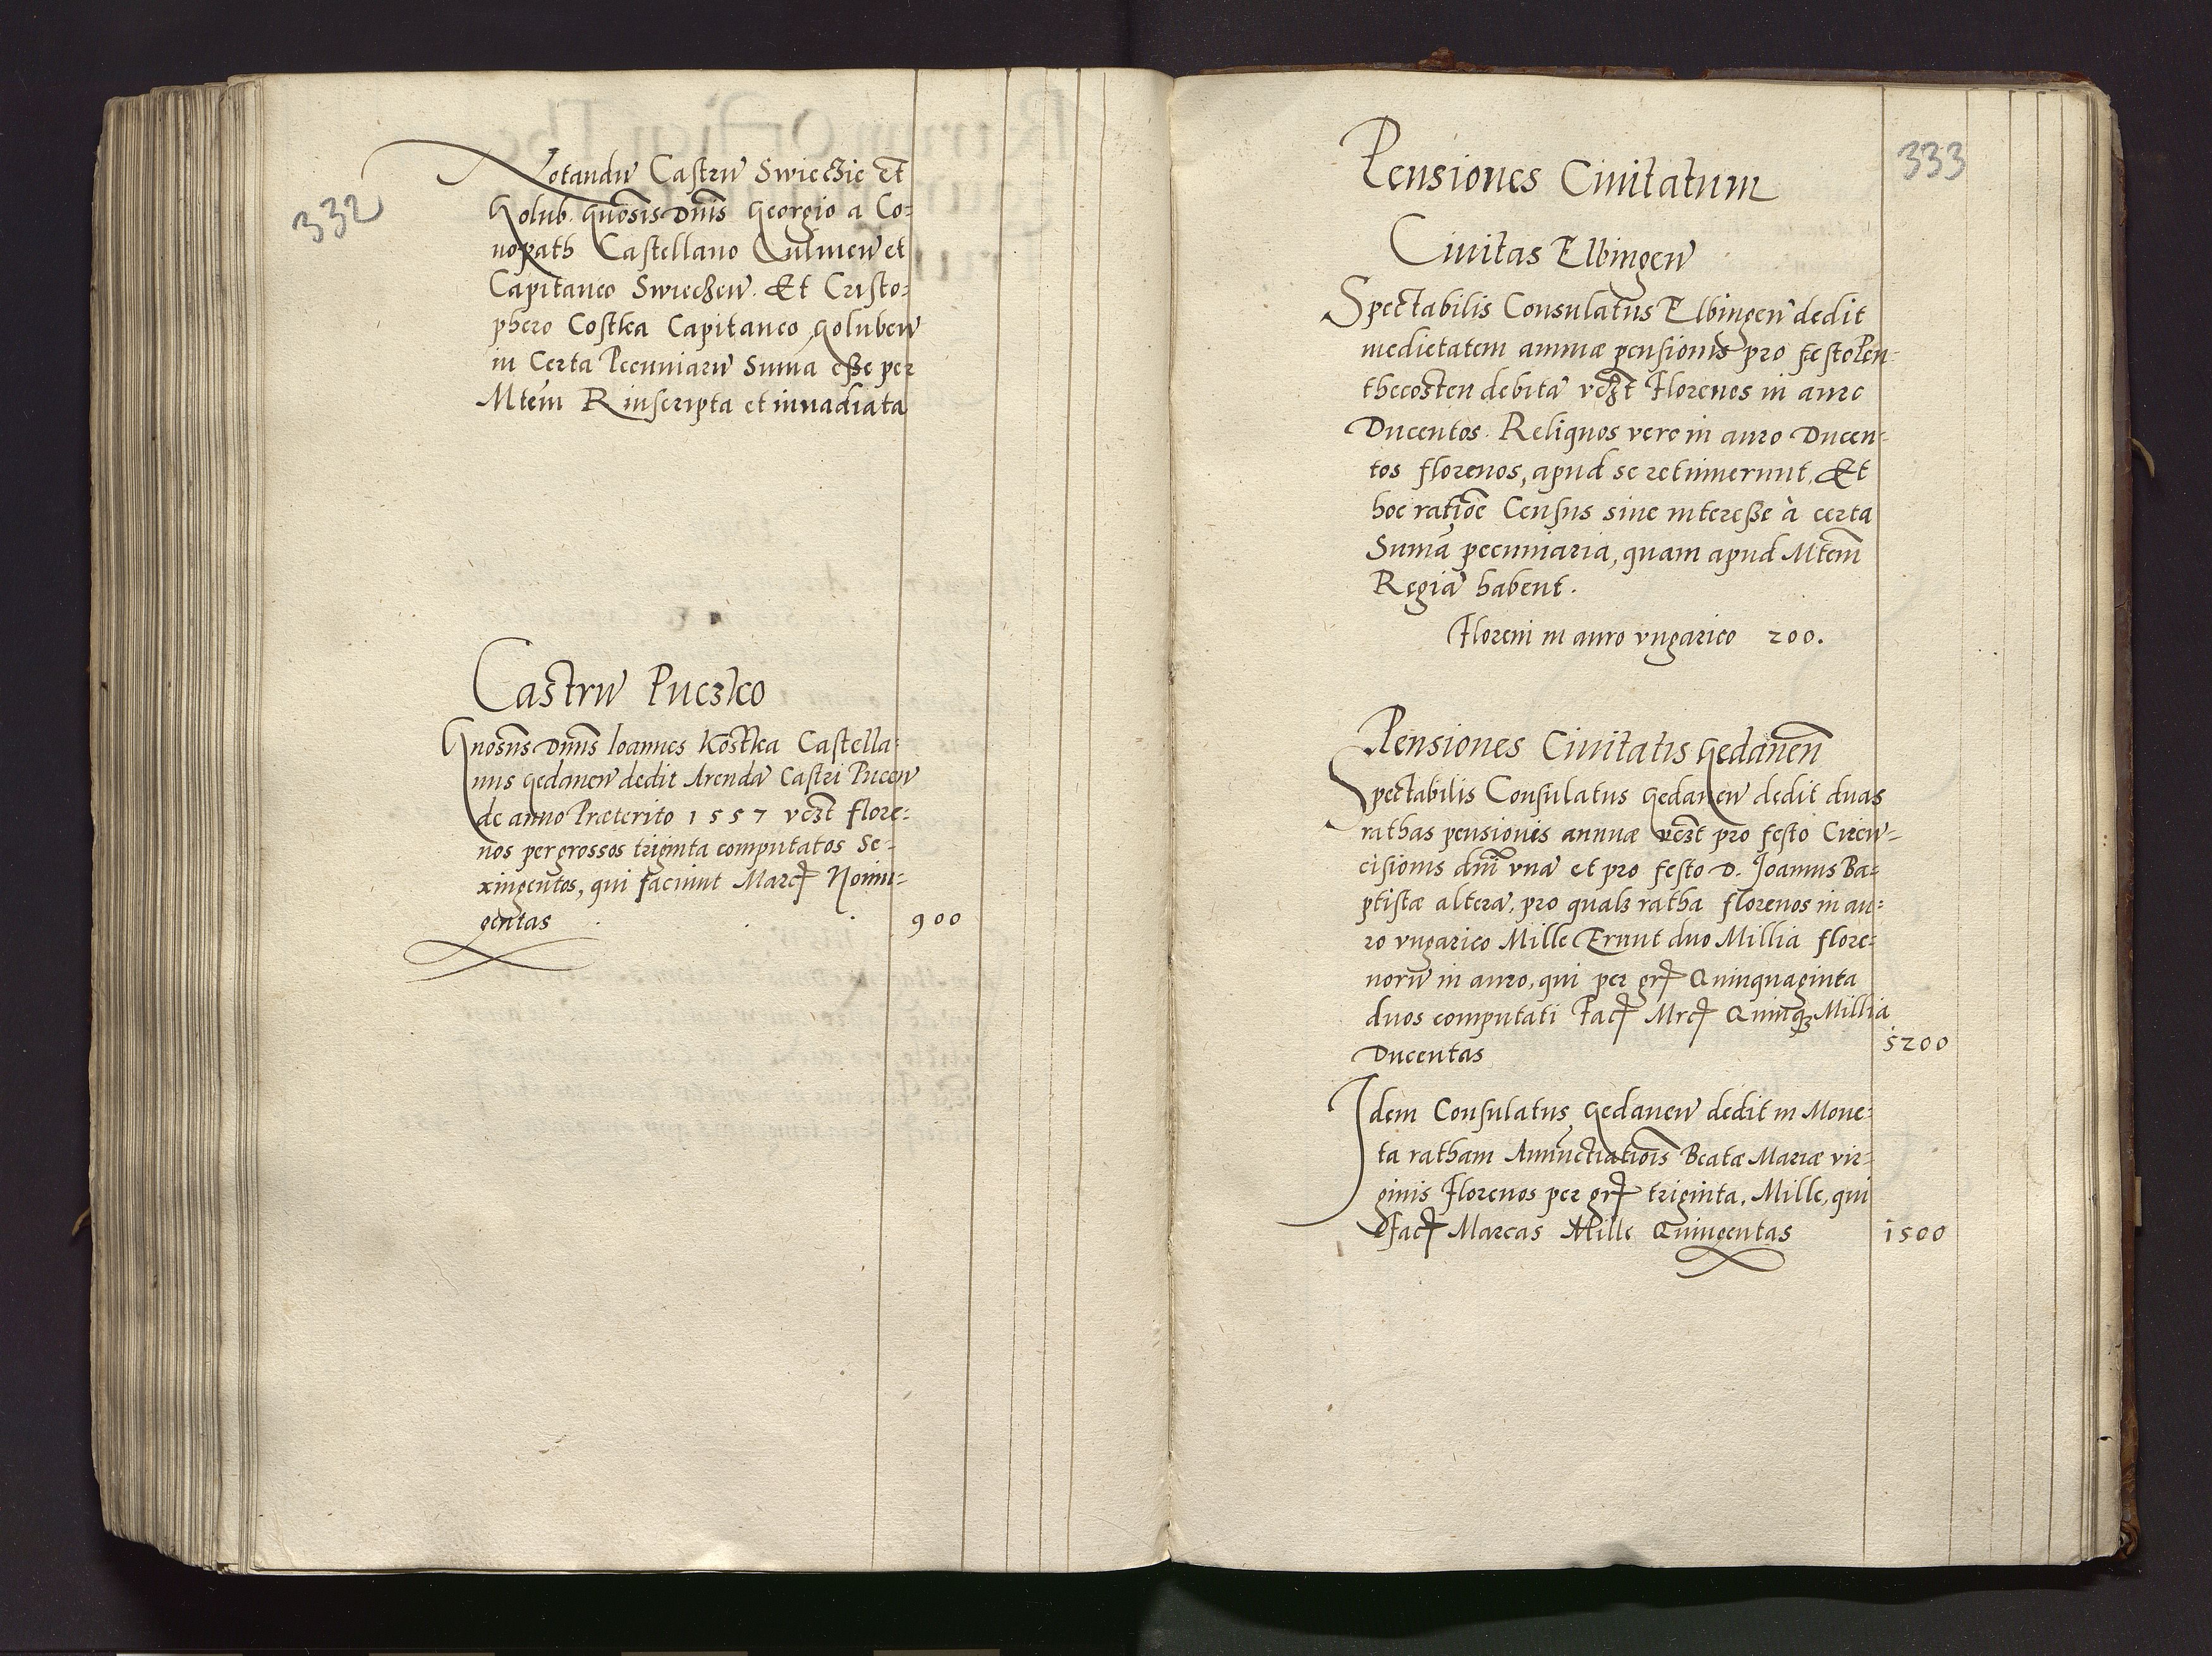 332
Notandũ Castrũ Swieczie et
Golub. Gnõsis Dnĩs Georgio a Co=
nopath Castellano Culmeñ et
Capitaneo Swieczeñ. Et Cristo=
phero Costka Capitaneo Golubeñ
in Certa Pecuniarũ Suma esse per
Mtẽm R inscripta et invadiata
Castrũ Puczko
Gnosũs Dnũs Ioannes Kostka Castella=
nus Gedaneñ dedit Arendã Castri Puceñ
de anno Præterito 1557 vczt flore=
nos per grossos triginta computatos Se=
xingentos, qui faciunt Marcȩ Nonin=
gentas . . 900
333
Pensiones Civitatum
Civitas Elbingeñ
Spectabilis Consulatus Elbingeñ dedit
medietatem annuæ pensionis pro festo Pen=
thecosten debitã vczt Florenos in auro
Ducentos. Reliquos vero in auro Ducen=
tos florenos, apud se retinuerunt. Et
hoc ratiõe Census sive interesse à certa
Sumã pecuniaria, quam apud Mtẽm
Regiã habent.
Floreni in auro vngarico 200.
Pensiones Civitatis Gedaneñ
Spectabilis Consulatus Gedaneñ dedit duas
rathas pensionis annuæ vczt pro festo Circũ=
cisionis dnĩ vnã et pro festo D. Joannis Ba=
ptistæ alterã, pro qualz ratha florenos in au=
ro vngarico Mille Erunt duo Millia flore=
norũ in auro, qui per grȩ Quinquaginta
duos computati Facȩ Mrcȩ Quinqz Millia
Ducentas 5200
Idem Consulatus Gedaneñ dedit in Mone=
ta ratham Annũctiatiõis Beatæ Mariæ vir=
ginis Florenos per grȩ triginta. Mille, qui
Facȩ Marcas Mille Quingentas 1500